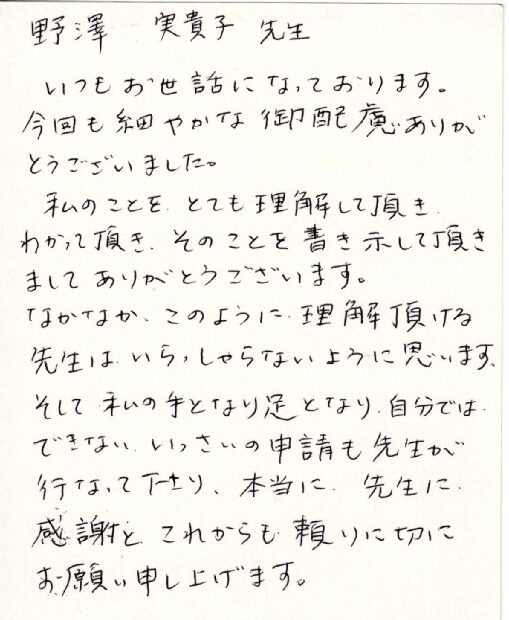 野澤　実貴子 先生
いつもお世話になっております。
今回も細やかな御配慮ありが
とうございました。
私のことを、とても理解して頂き、
わかって頂き、そのことを書き示して頂き
ましてありがとうございます。
なかなか、このように、理解頂ける
先生は、いらっしゃらないように思います。
そして私の手となり足となり、自分では、
できない、いっさいの申請も先生が
行なって下さり、本当に、先生に、
感謝と、これからも、頼りに切に
お願い申し上げます。